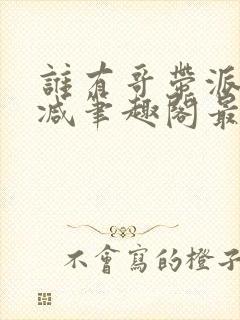 誰有哥帶派
減筆趣閣最
不會寫的橙子